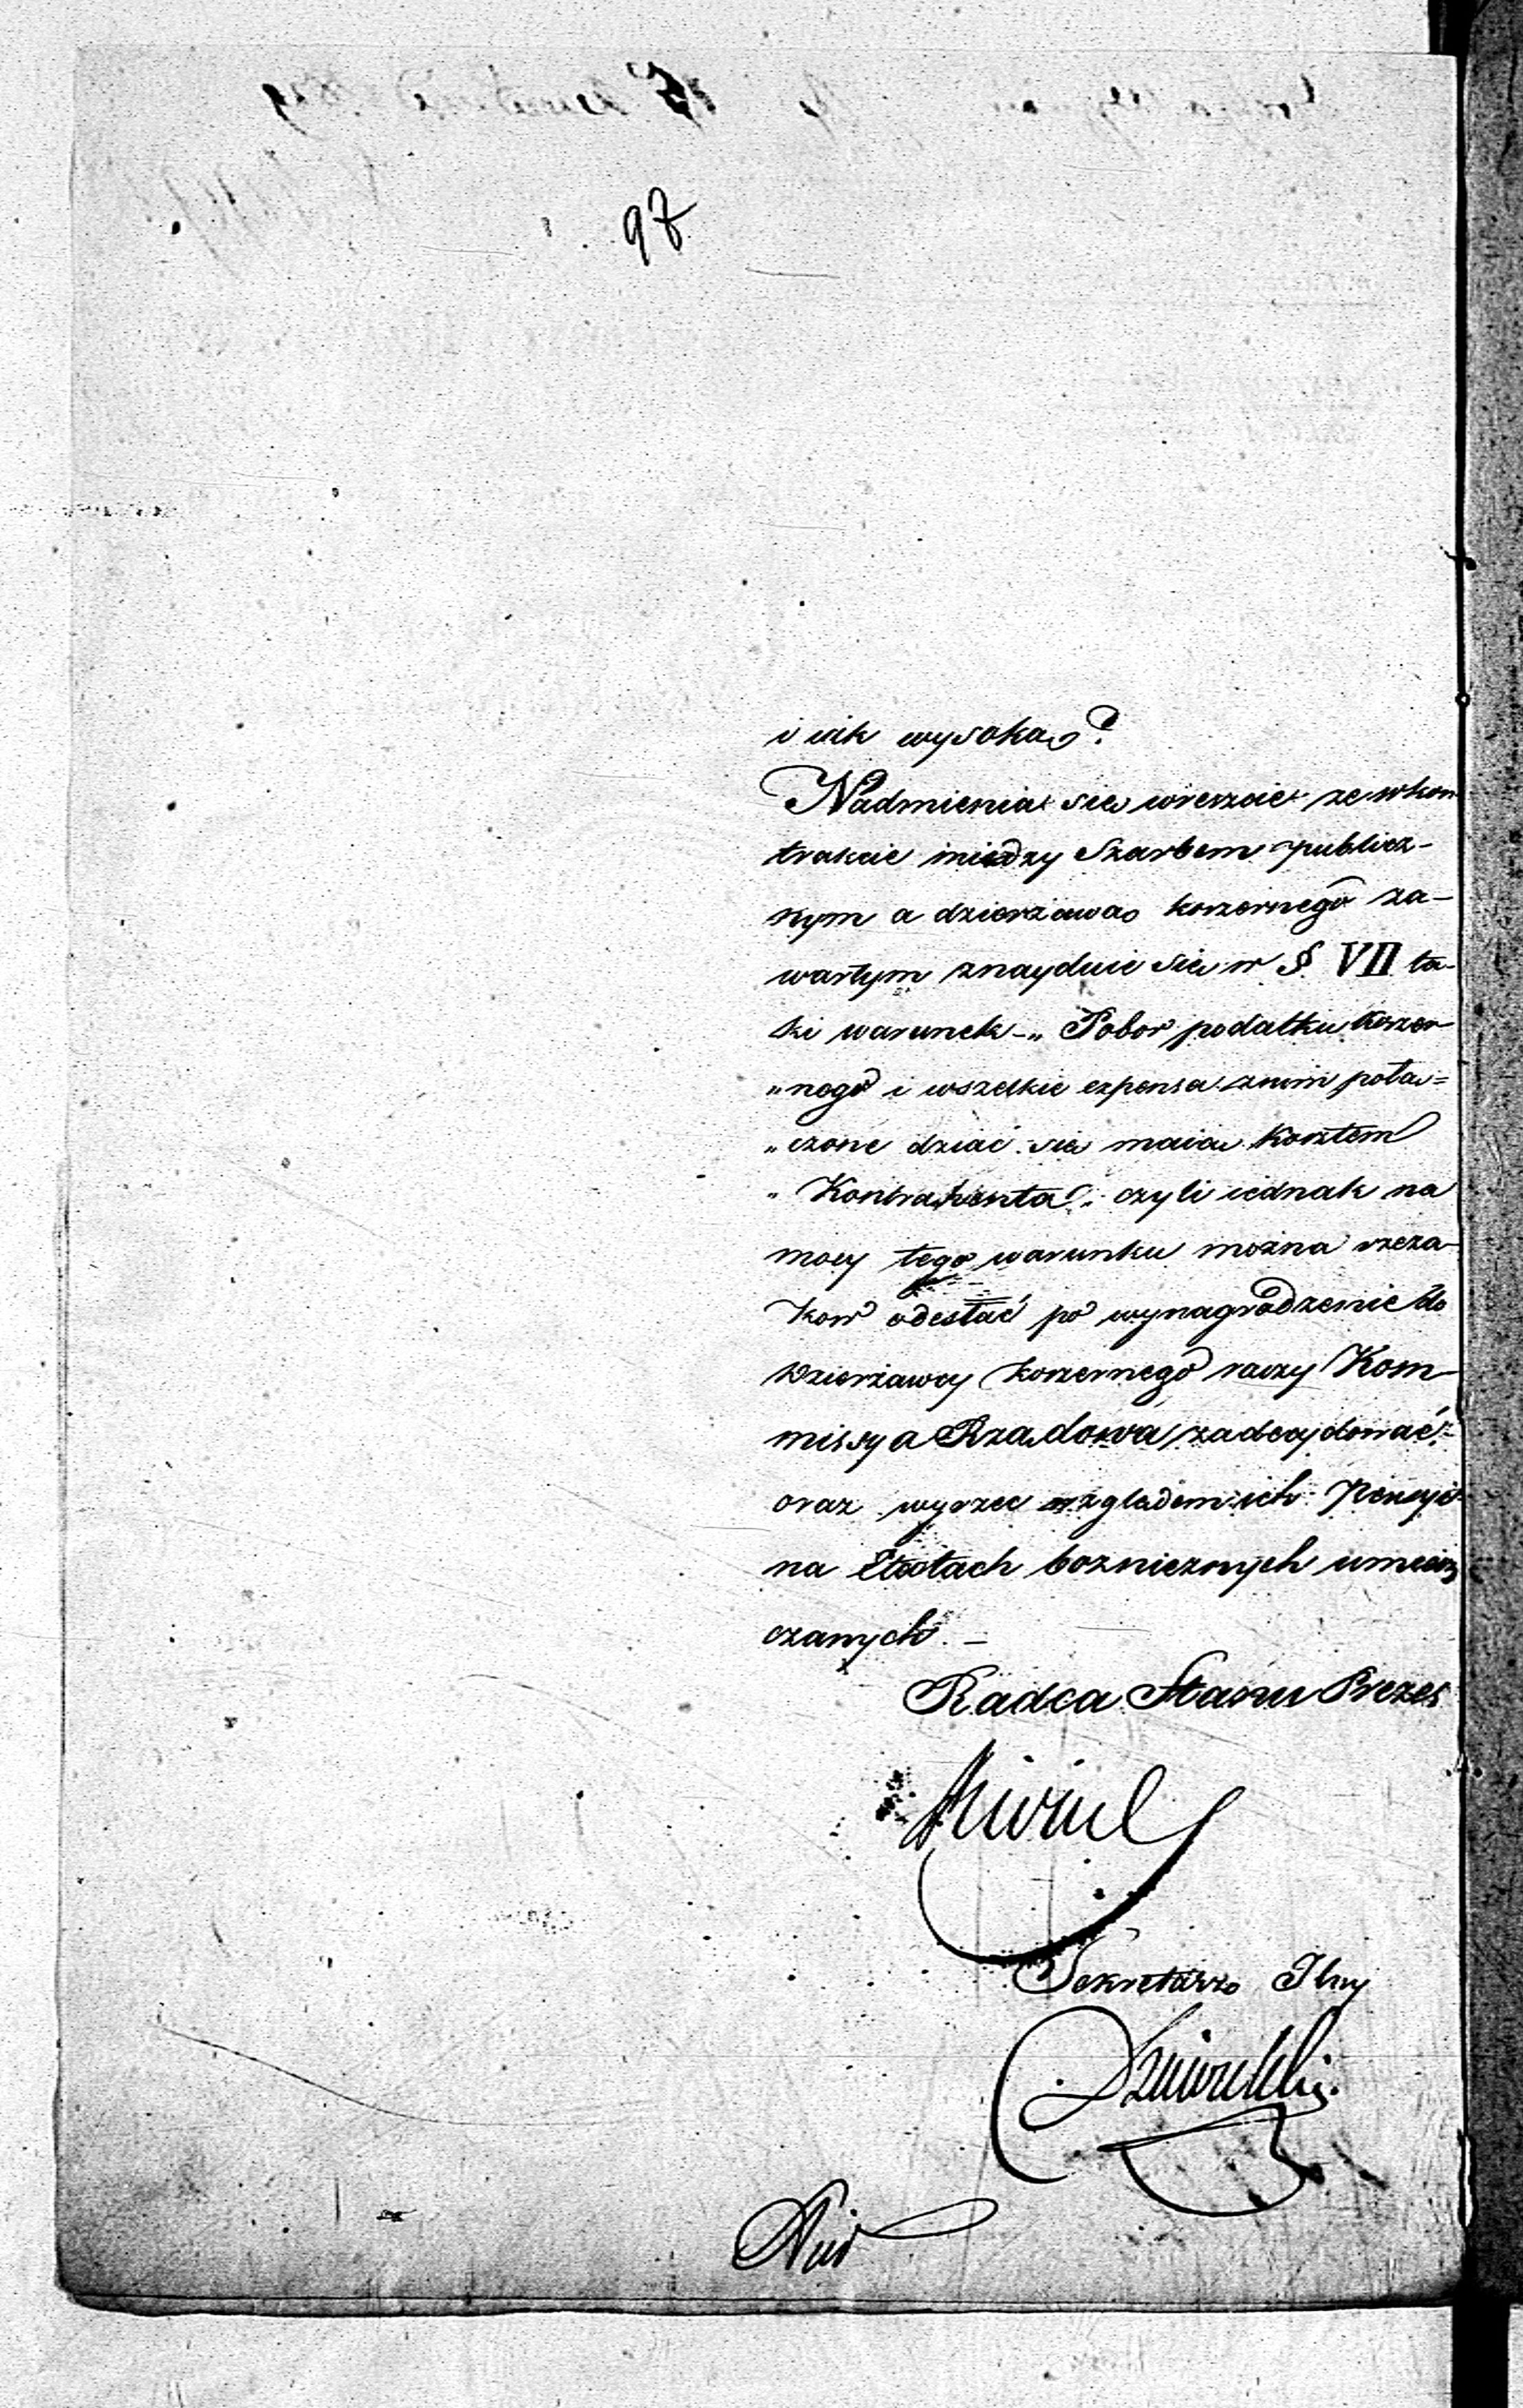 97
i iak wysoką?
Nadmienia się wreszcie że w kon
trakcie między Skarbem publicz-
nym a dzierżawcą koszernego za-
wartym znayduie się w § VII ta-
ki warunek - „Pobor podatku koszer-
„nego i wszelkie expensa z nim połą=
„czone dziać się maią kosztem
„Kontrahenta„ czyli iednak na
mocy tego warunku można rzeza-
kow odesłać po wynagrodzenie do
Dzierżawcy koszernego raczy Kom-
missya Rządowa zadecydować
oraz wyrzec względem ich Pensyi
na Etatach bożnicznych umiesz
czanych. -
Radca Stanu Prezes
Sekretarz Jlny